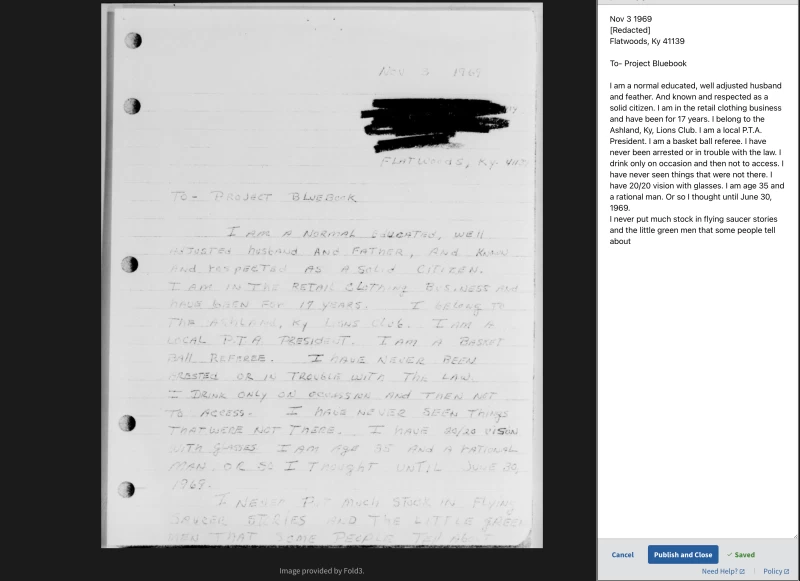 Nov 3 1969
FLATWOODS, Ky. 411
TO- PROJECT BLUEBOOK
I AM A NORMAL EDUCATED, WELL
ADJUSTED HUSBAND AND FATHER, AND KNOWN
AND RESPECTED AS A SOLID CITIZEN.
I AM IN THE RETAIL CLOTHING BUSINESS AND
HAVE BEEN FOR 17 YEARS. I BELONG TO
THE ASHLAND, Ky LIONS CLUB. I AM A
LOCAL P.T.A PRESIDENT. I AM A BASKET
BALL REFEREE. I HAVE NEVER BEEN
ARRESTED OR IN TROUBLE WITH THE LAW.
I DRINK ONLY ON OCCASSION AND THEN NOT
TO ACCESS. I HAVE NEVER SEEN THINGS
THAT WERE NOT THERE. I HAVE 20/20 VISON
WITH GLASSES I AM AGE 35 AND A RATIONAL
MAN. OR SO I THOUGHT UNTIL JUNE 30,
1969.
I NEVER PUT MUCH STOCK IN FLYING
SAUCER STORIES AND THE LITTLE GREEN
MEN THAT SOME PEOPLE TELL ABOUT
Image provided by Fold3.
Nov 3 1969
[Redacted]
Flatwoods, Ky 41139
To- Project Bluebook
I am a normal educated, well adjusted husband
and feather. And known and respected as a
solid citizen. I am in the retail clothing business
and have been for 17 years. I belong to the
Ashland, Ky, Lions Club. I am a local P.T.A.
President. I am a basket ball referee. I have
never been arrested or in trouble with the law. I
drink only on occasion and then not to access. I
have never seen things that were not there. I
have 20/20 vision with glasses. I am age 35 and
a rational man. Or so I thought until June 30,
1969.
I never put much stock in flying saucer stories
and the little green men that some people tell
about
Cancel
Publish and Close
Saved
Need Help?
Policy